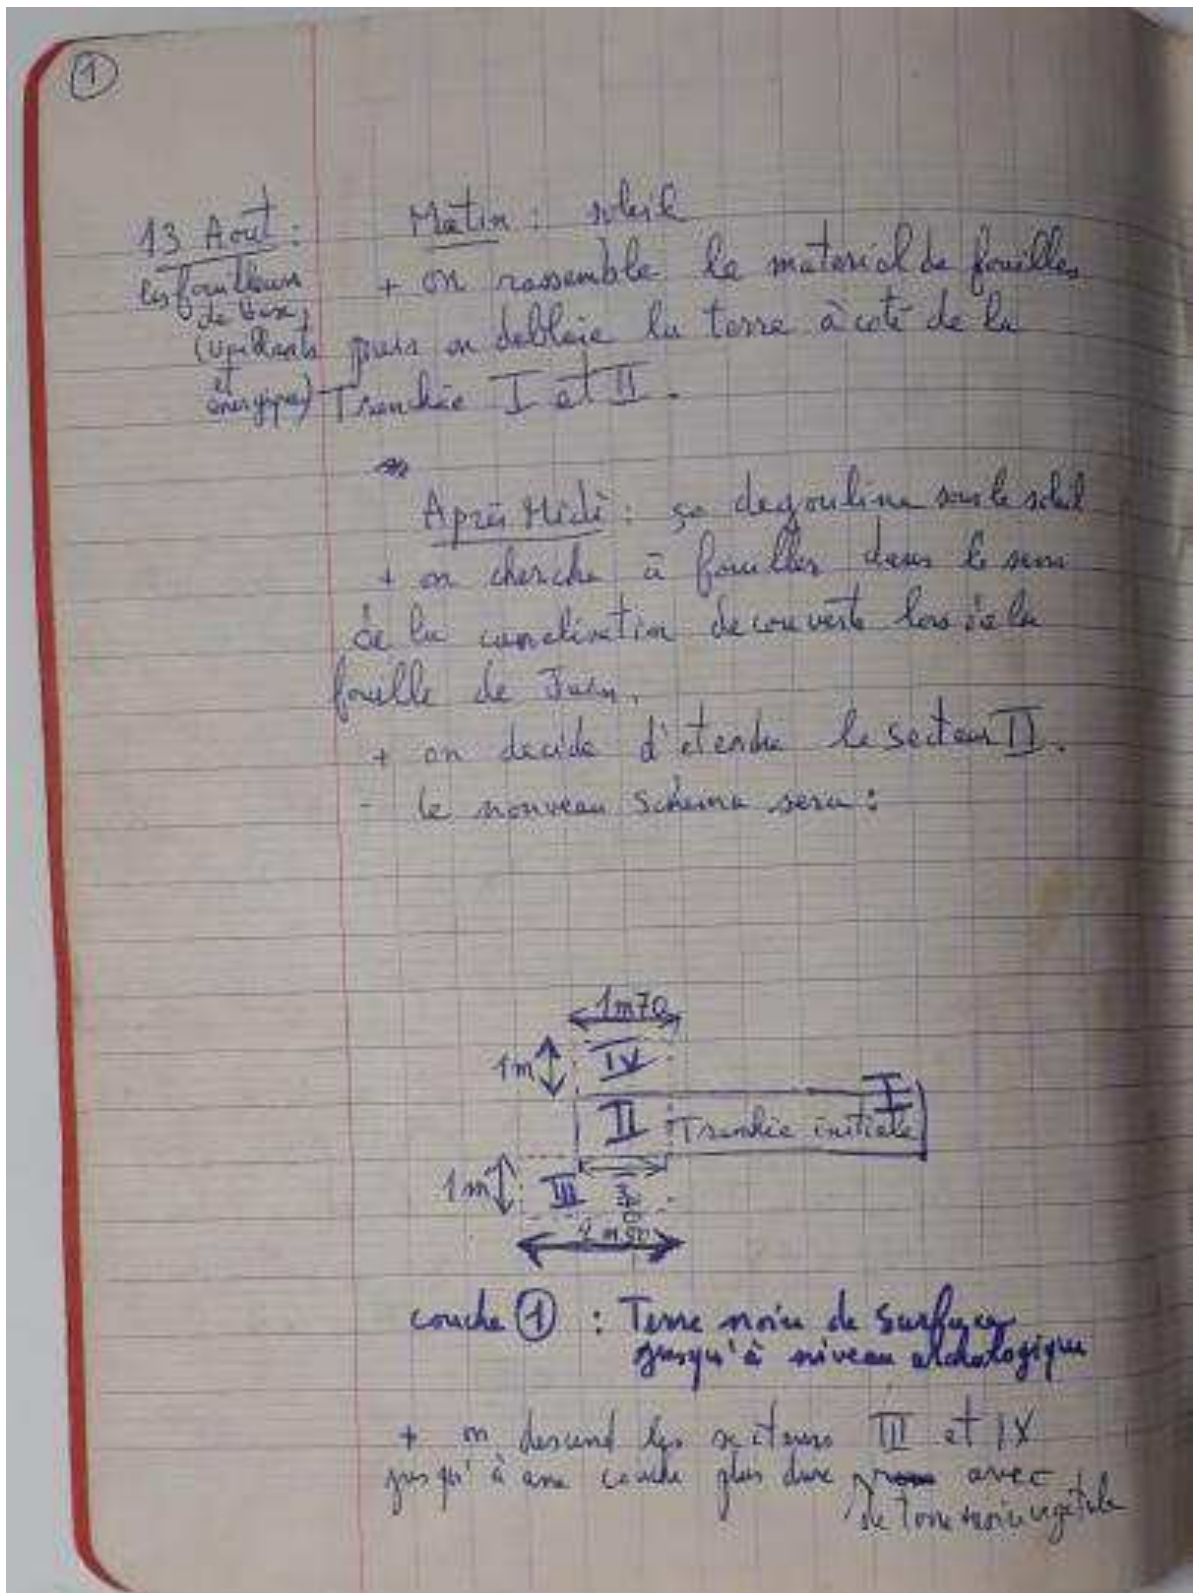 ①
13 Août : Matin : soleil
les fouilleurs + on rassemble le material de fouilles
de base, puis on deblaie la terre à coté de la
et Tranchée I et II.
Après Midi : ça degouline sous le soleil
+ on cherche à fouiller dans le sens
de la canalisation decouverte lors de la
fouille de Juin.
+ on decide d'etendre le secteur II.
- le nouveau schema sera :
1m70
1m IV
I
II Tranchée initiale
1m III
2m50
couche ① : Terre noire de surface
jusqu'à niveau archalogique
+ on descend les secteurs III et IV
jusqu'à une couche plus dure avec
de terre noire vegetale